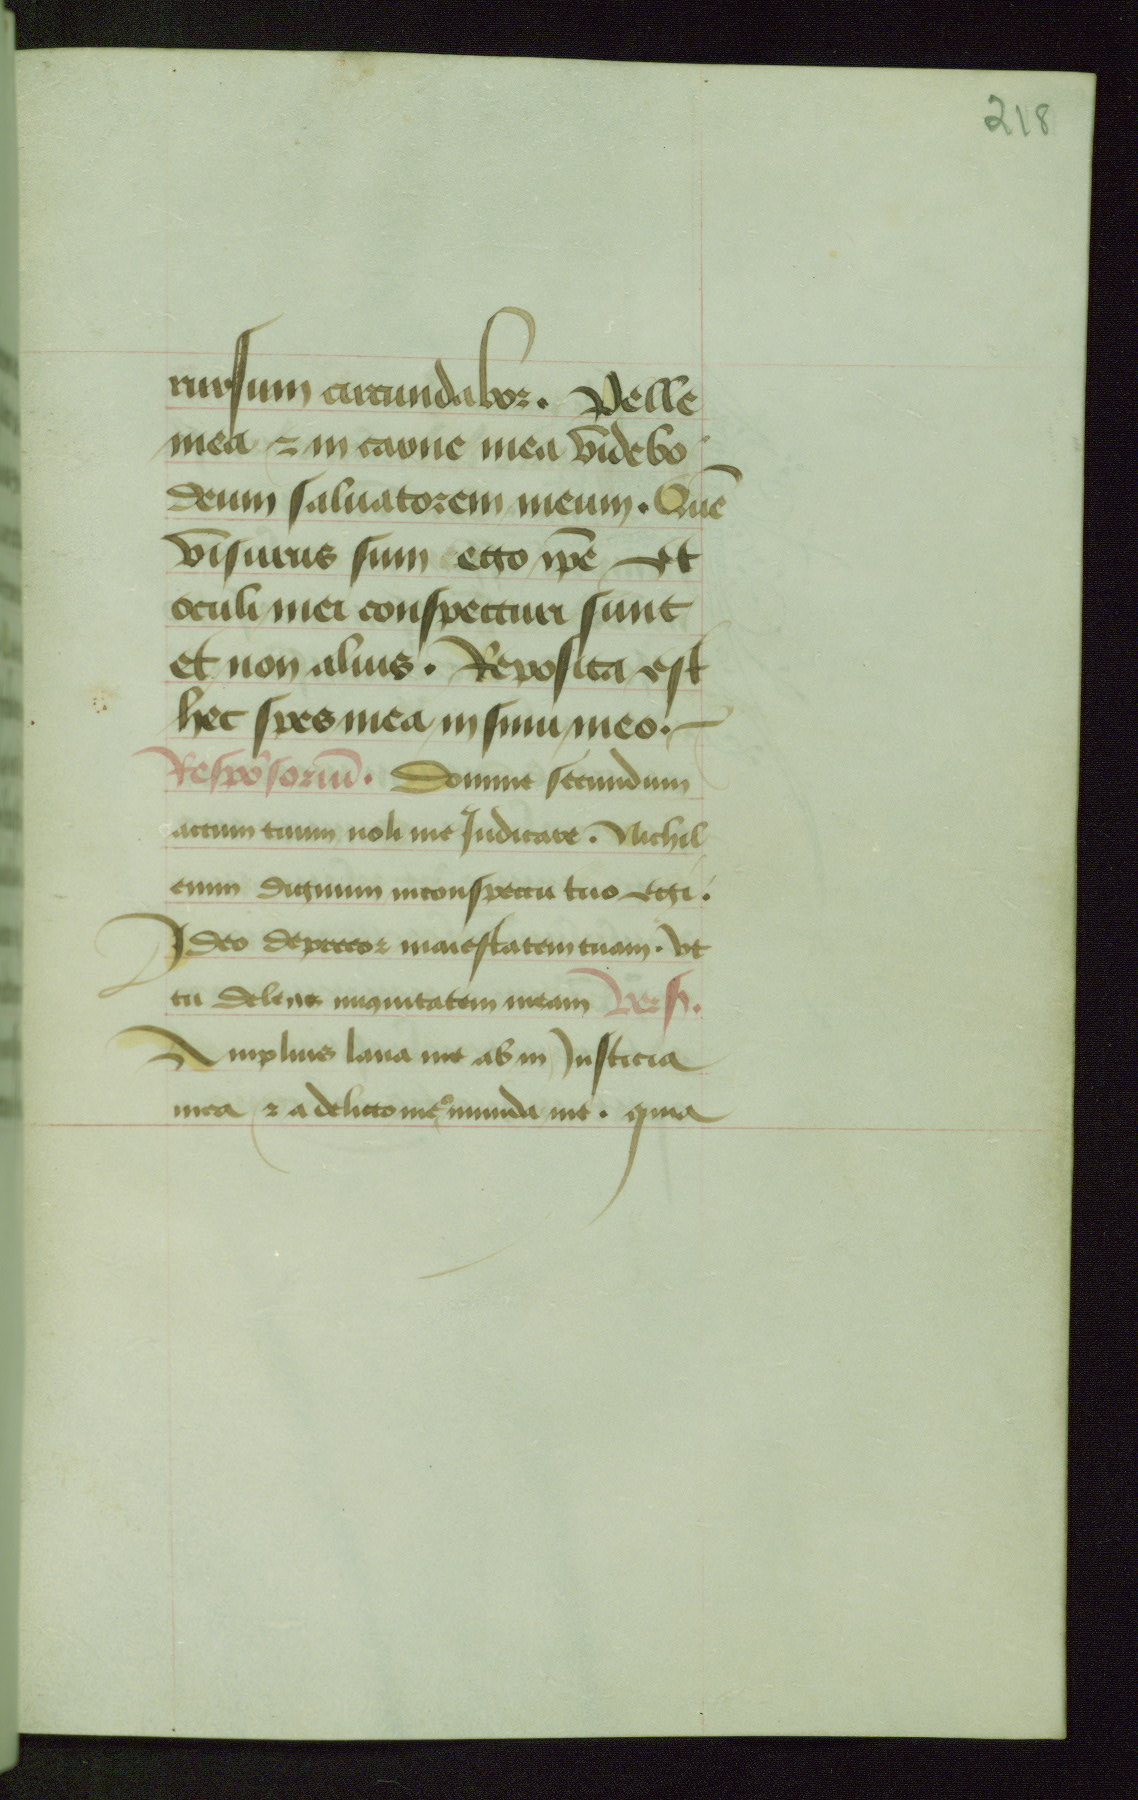 218
rursum circundabor. Pelle
mea ⁊ in carne mea videbo
deum saluatorem meum. Quē
visurus sum ego ip̄e Et
oculi mei conspecturi sunt
et non alius. Reposita est
hec spes mea in sinu meo.
Respōsoriū. Domine secundum
actum tuum noli me Judicare. Nichil
enim dignum in conspectu tuo egi.
Ideo deprecor maiestatem tuam. Vt
tu deleas iniquitatem meam Vers.
Amplius laua me ab in Justicia
mea ⁊ a delicto meo munda me. quia